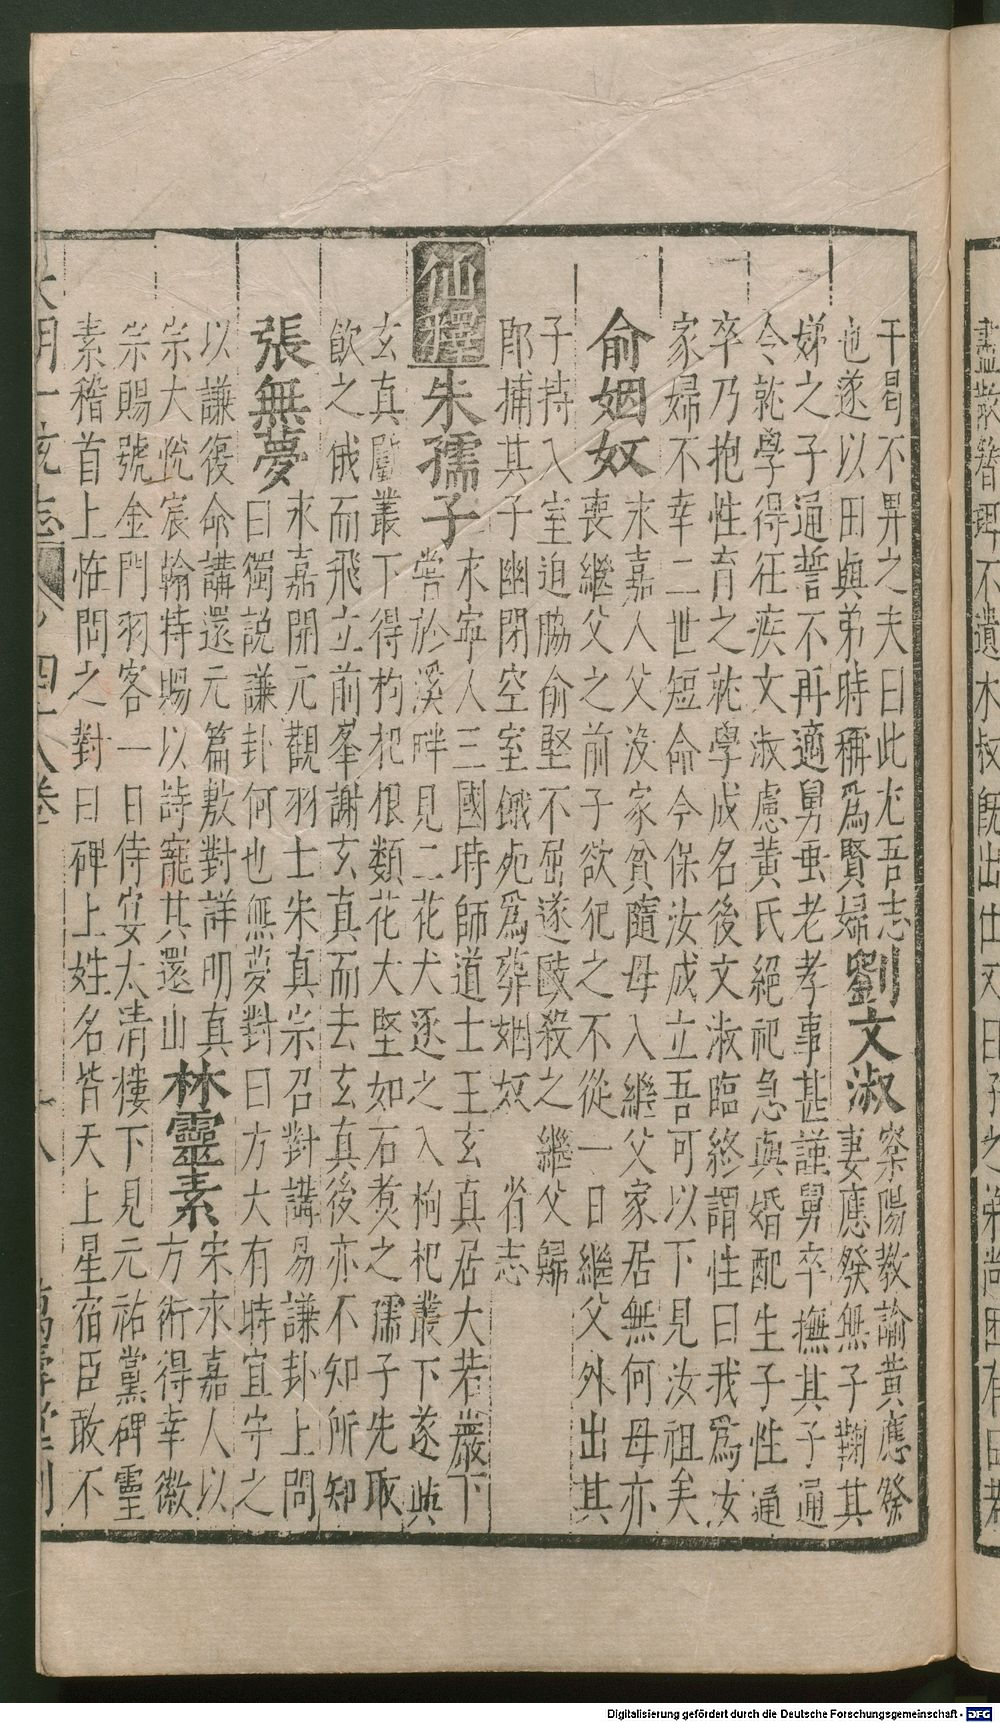 干昜不畀之夫曰此尤吾志劉文淑寧陽教諭黄應發
也遂以田與弟時稱爲賢婦妻應發無子鞠其
娣之子通誓不再適舅䖝老孝事甚謹舅卒撫其子通
令就學得狂疾文淑慮黄氏絕祀急與婚配生子性通
卒乃抱性育之就學成名後文淑臨終謂性曰我爲汝
家婦不幸二世短命今保汝成立吾可以下見汝祖矣
俞姻奴永嘉人父沒家貧隨母入繼父家居無何母亦
喪繼父之前子欲犯之不從一日繼父外出其
子持入室迫脇俞堅不屈遂毆殺之繼父歸
郎捕其子幽閉空室餓死爲葬姻奴省志
仙釋朱孺子永寧人三國時師道士王玄真居大若巖下
嘗於溪畔見二花犬逐之入枸杞叢下遂與
玄真劚叢下得枸杞根類花犬堅如石煑之孺子先取
飲之俄而飛立前峯謝玄真而去玄真後亦不知所知
張無夢永嘉開元觀羽士朱真宗召對講易謙卦上問
曰獨説謙卦何也無夢對曰方大有時宜守之
以謙復命講還元篇敷對詳明真林靈素宋永嘉人以
宗大悦宸翰特賜以詩寵其還山方術得幸徽
宗賜號金門羽客一日侍宴太清樓下見元祐黨碑靈
素稽首上恠問之對曰碑上姓名皆天上星宿臣敢不
大明一統志 四十八卷 十八 萬壽堂刊
Digitalisierung gefördert durch die Deutsche Forschungsgemeinschaft - DFG